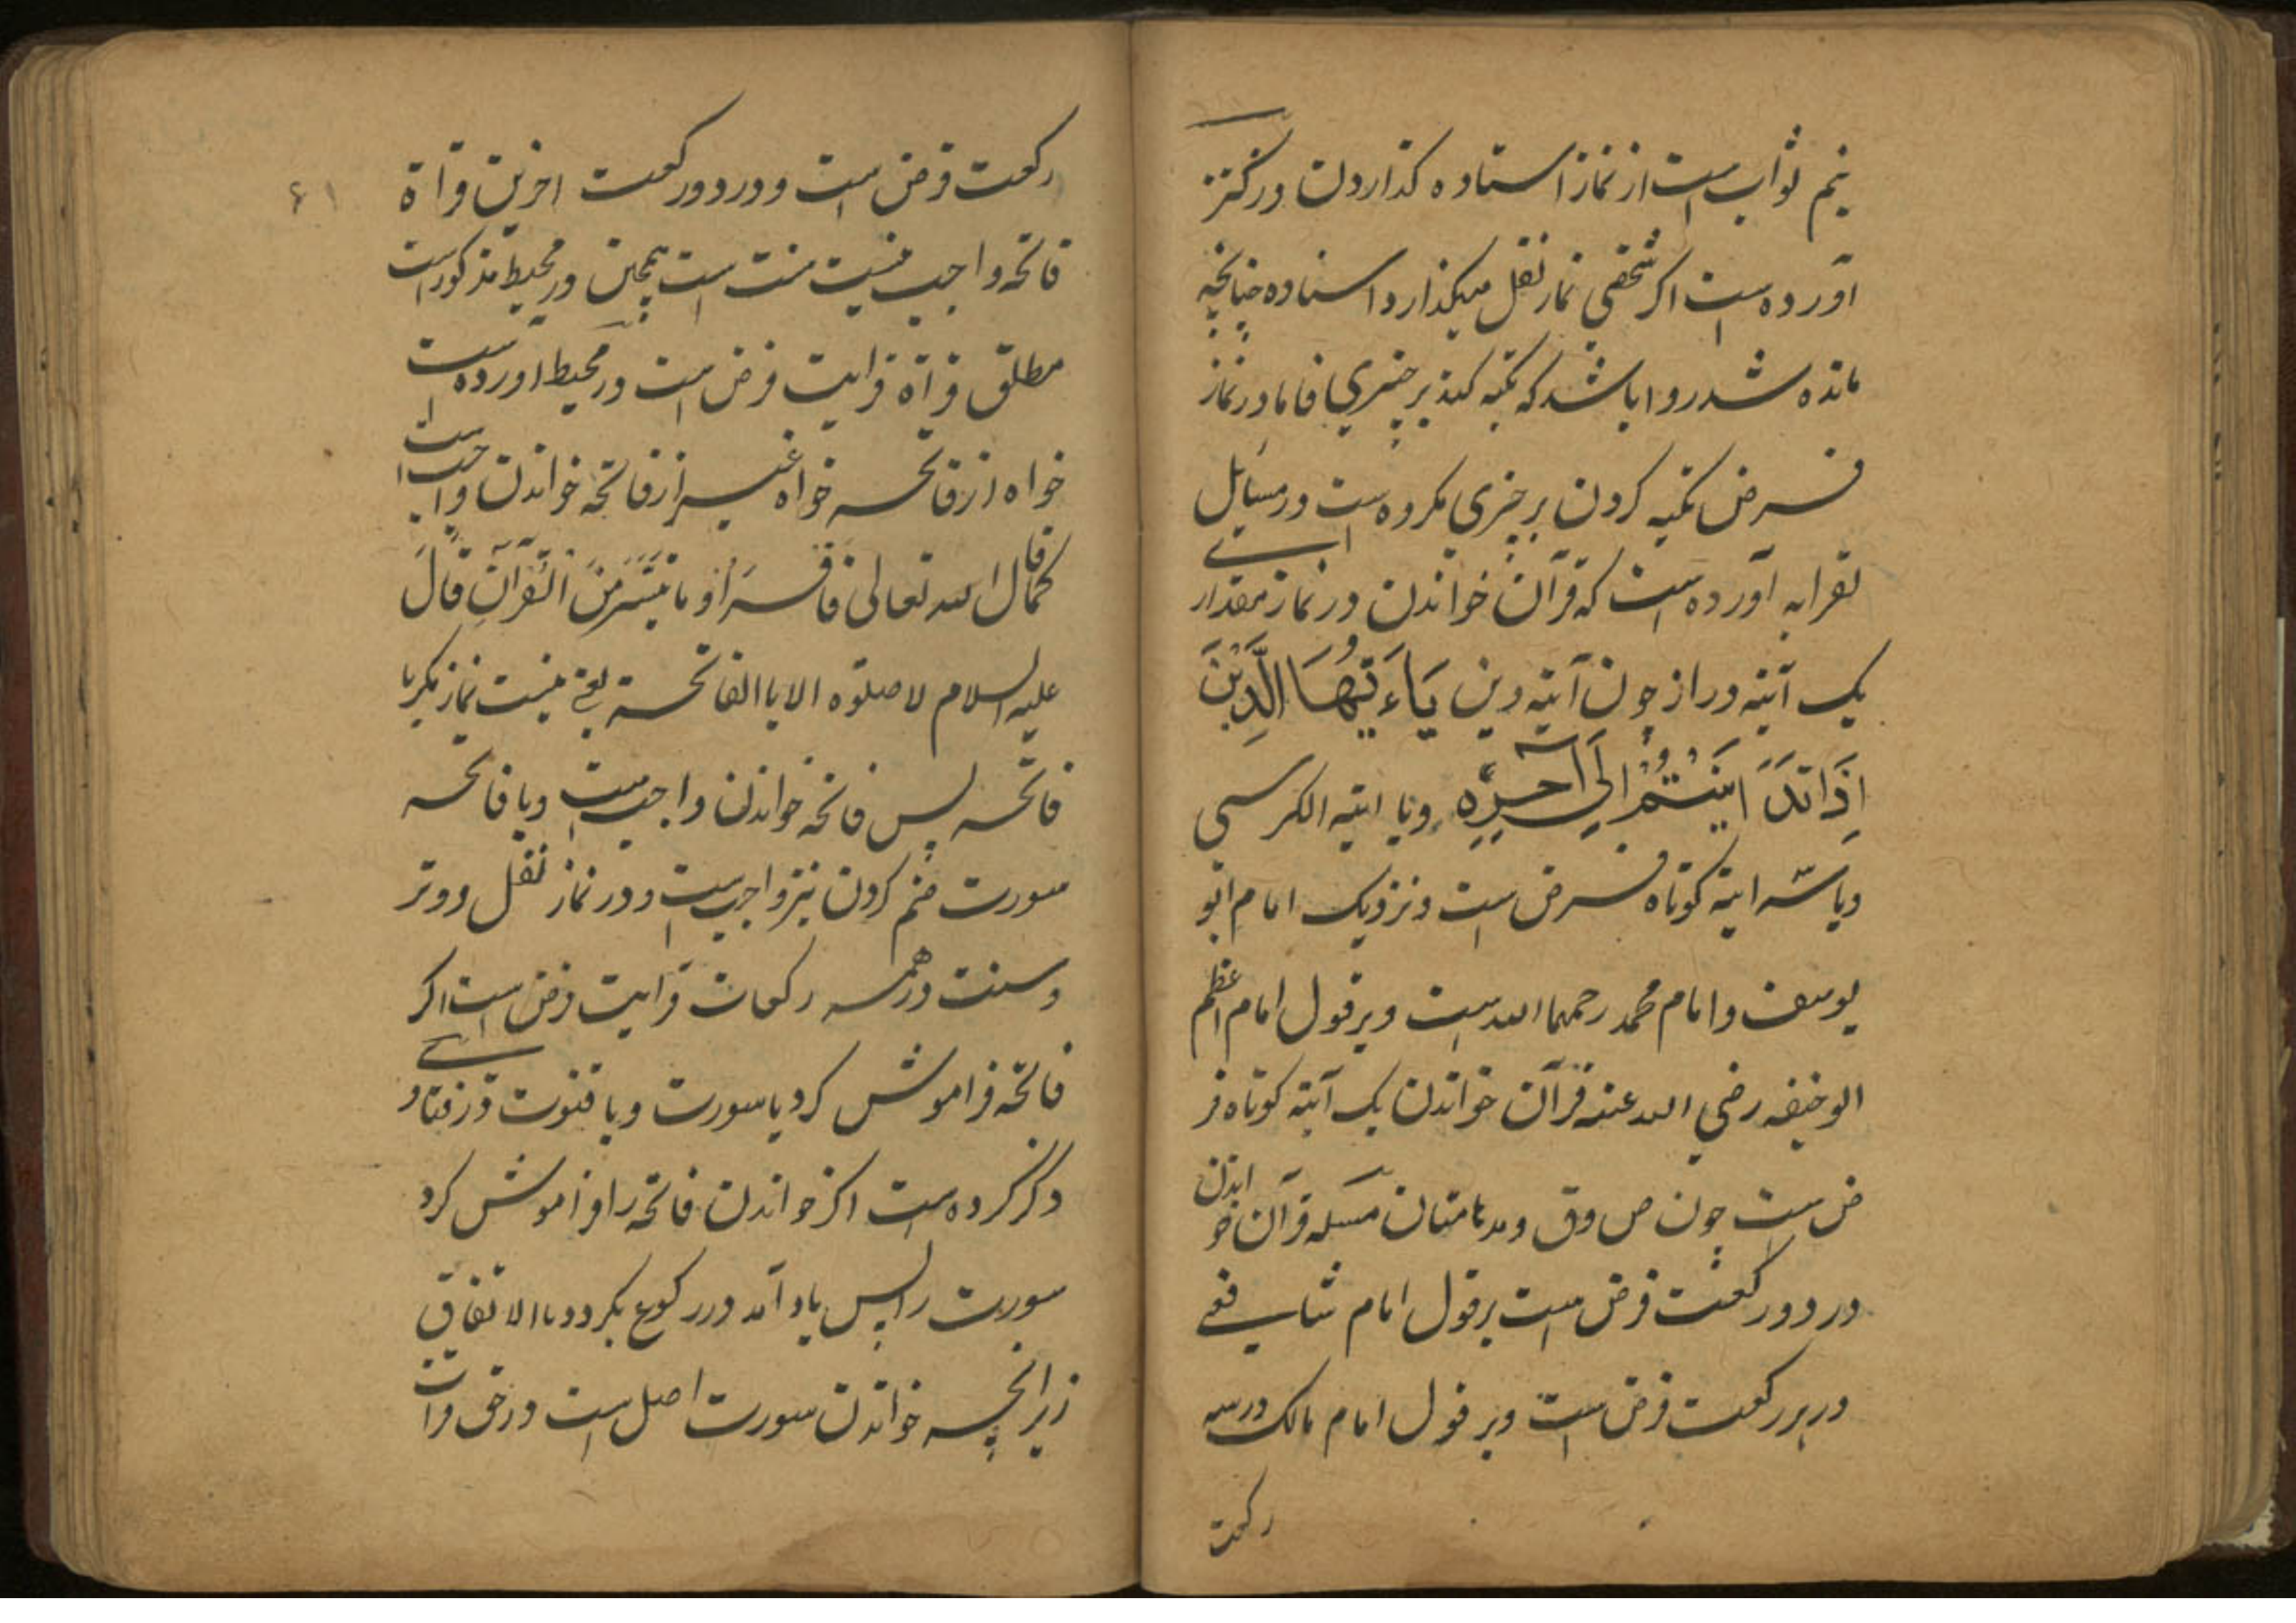 نیم ثواب است از نماز استاده کذاردن در کنز
آورده است اکر شخصی نماز نفل میکذارد استاده چنانچه
مانده شد روا باشد که تکیه کند بر چیزی فاما در نماز
فرض تکیه کردن بر چیزی مکروه است در مسایل
لقرابه آورده است که قرآن خواندن در نماز مقدار
یک آیته دراز چون آیته دین یَاءَیُّهَا الَّذِیْنَ
اِذَا تَدَایَنْتُمْ اِلَی آخِرِه ویا ایته الکرسی
ویا سه ایته کوتاه فرض است و نزدیک امام ابو
یوسف و امام محمد رحمهما الله است و بر قول امام اعظم
ابو حنیفه رضی الله عنه قرآن خواندن یک آیته کوتاه فر
ض است چون ص وق ومدهامتان مسله قرآن خواندن
در دو رکعت فرض است بر قول امام شافعی
در هر رکعت فرض است وبر قول امام مالک در سه
رکعت
۶۱
رکعت فرض است و در دو رکعت اخرین قراة
فاتحه واجب نیست سنت است همچنین در محیط مذکور است
مطلق قراة قرایت فرض است در محیط آورده است
خواه از فاتحه خواه غیر از فاتحه خواندن واجب است
کما قال الله تعالی فاقرؤا ما تیسر من القرآن قال
علیه السلام لا صلوة الا باالفاتحة یعنی نیست نماز مکر با
فاتحه پس فاتحه خواندن واجب است وبا فاتحه
سورت ضم کردن نیز واجب است و در نماز نفل و وتر
وسنت در همه رکعات قرایت فرض است اکر
فاتحه فراموش کرد یا سورت ویا قنوت در فتاو
ذکر کرده است اکر خواندن فاتحه را فراموش کرد
سورت را پس یاد آمد در رکوع بکردد باالاتفاق
زیرانچه خواندن سورت اصل است در حق قرات